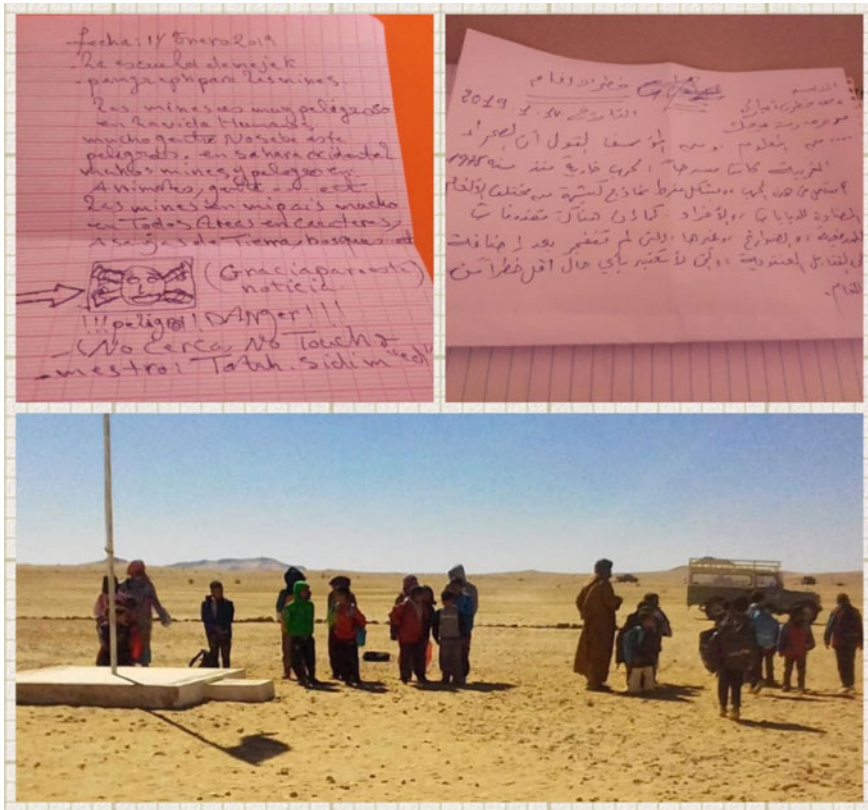 fecha: 14 Enero 2019
- La escuela de mejek
- paragraph para Las mines.
Las mines es muy peligroso
en La vida Humana
mucho gente No sabe este
peligroso. en sahara occidental
muchos mines y peligroso en
Animales, gente ... ect
Las mines en mi pais mucho
en Todos Areas en carateras,
de Tierra, bosques. et
(Gracia par este)
noticia.
!!! peligro!! DANger!!!
- (No Cerca, No Touch)
- mestro: Totah. Sidi m"ed"
خطر الألغام
التاريخ 14. 1. 2019
.... من المعلوم ومن المؤسف لقول أن الصحراء
الغربية كانت مسرحا لحرب ضارية منذ سنة 1975
استعمل في هذه الحرب وبشكل مفرط نماذج كثيرة من مختلف الألغام
المضادة للدبابات والأفراد. كما أن هناك مقذوفات
المدفعية والصواريخ وغيرها التي لم تنفجر بعد إضافة
إلى القنابل العنقودية، والتي لا تعتبر بأي حال أقل خطرا من
الألغام.